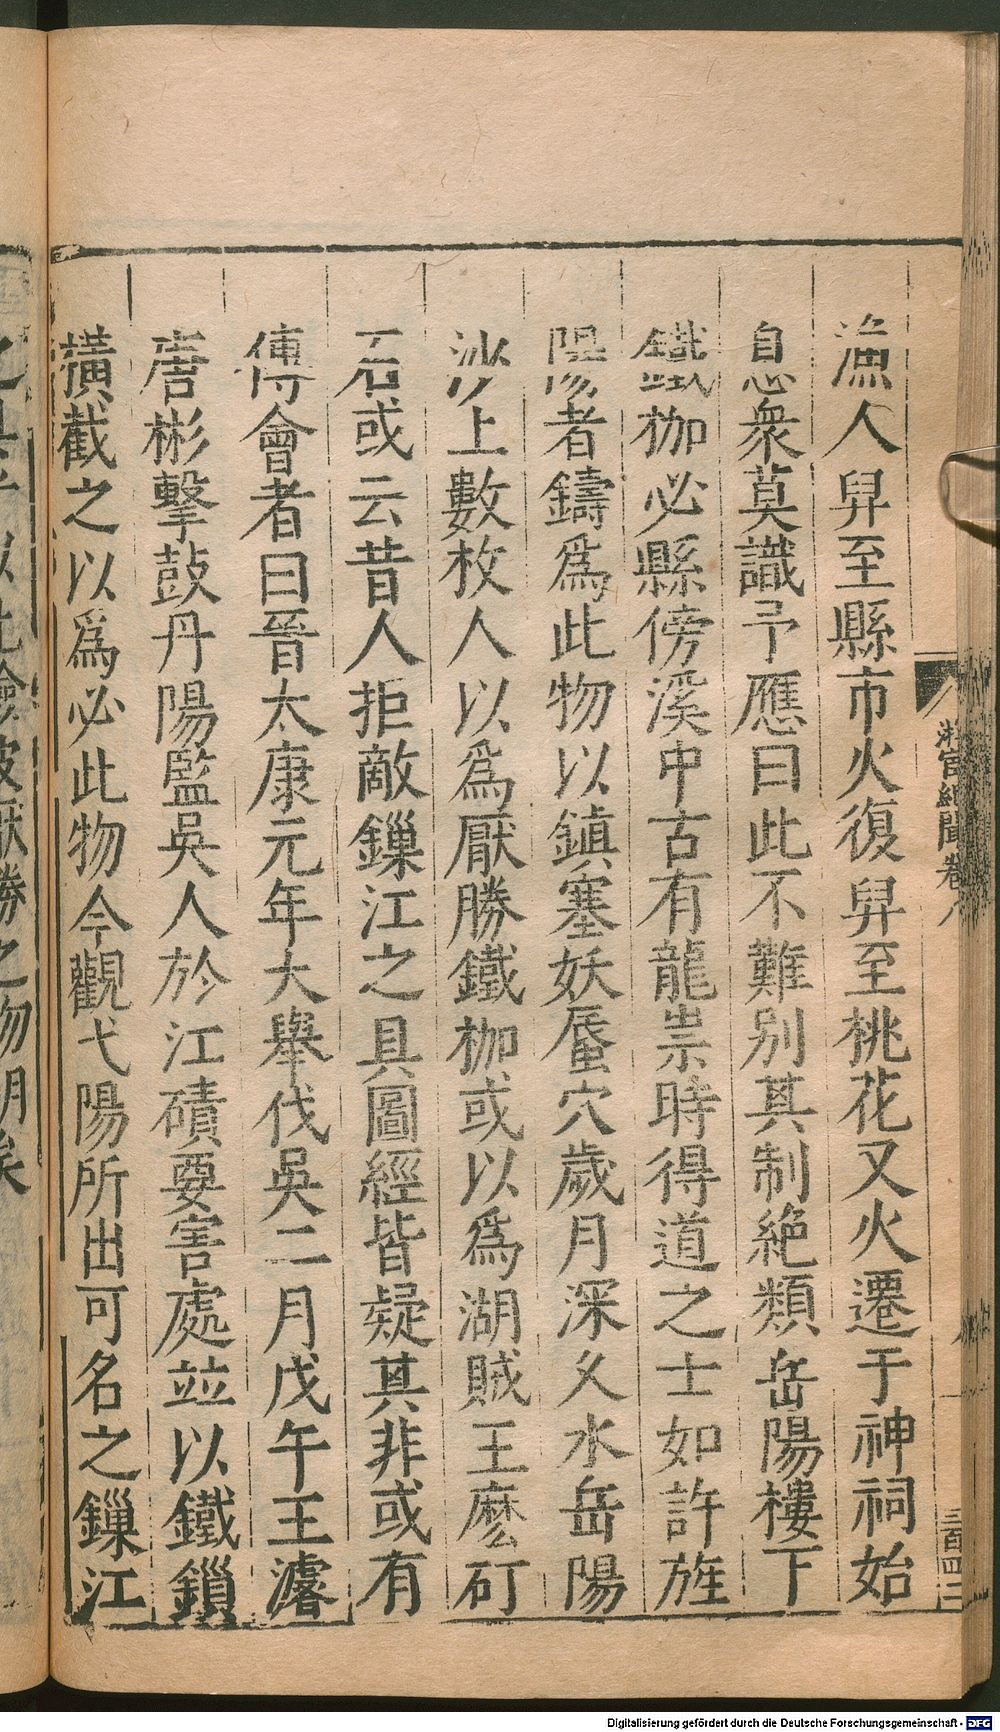 漁人舁至縣市火復舁至桃花又火遷于神祠始
息衆莫識予應曰此不難別其制絶類岳陽樓下
鐵枷必縣傍溪中古有龍祟時得道之士如許旌
陽者鑄爲此物以鎮塞妖蜃穴歲月深久水岳陽
沙上數枚人以爲厭勝鐵枷或以爲湖賊王麽矴
石或云昔人拒敵鏁江之具圖經皆疑其非或有
傅會者曰晉太康元年大舉伐吳二月戊午王濬
唐彬擊鼓丹陽監吳人於江磧要害處竝以鐵鎖
橫截之以爲必此物今觀弋陽所出可名之鏁江
聞卷八
三百四
Digitalisierung gefördert durch die Deutsche Forschungsgemeinschaft - DFG